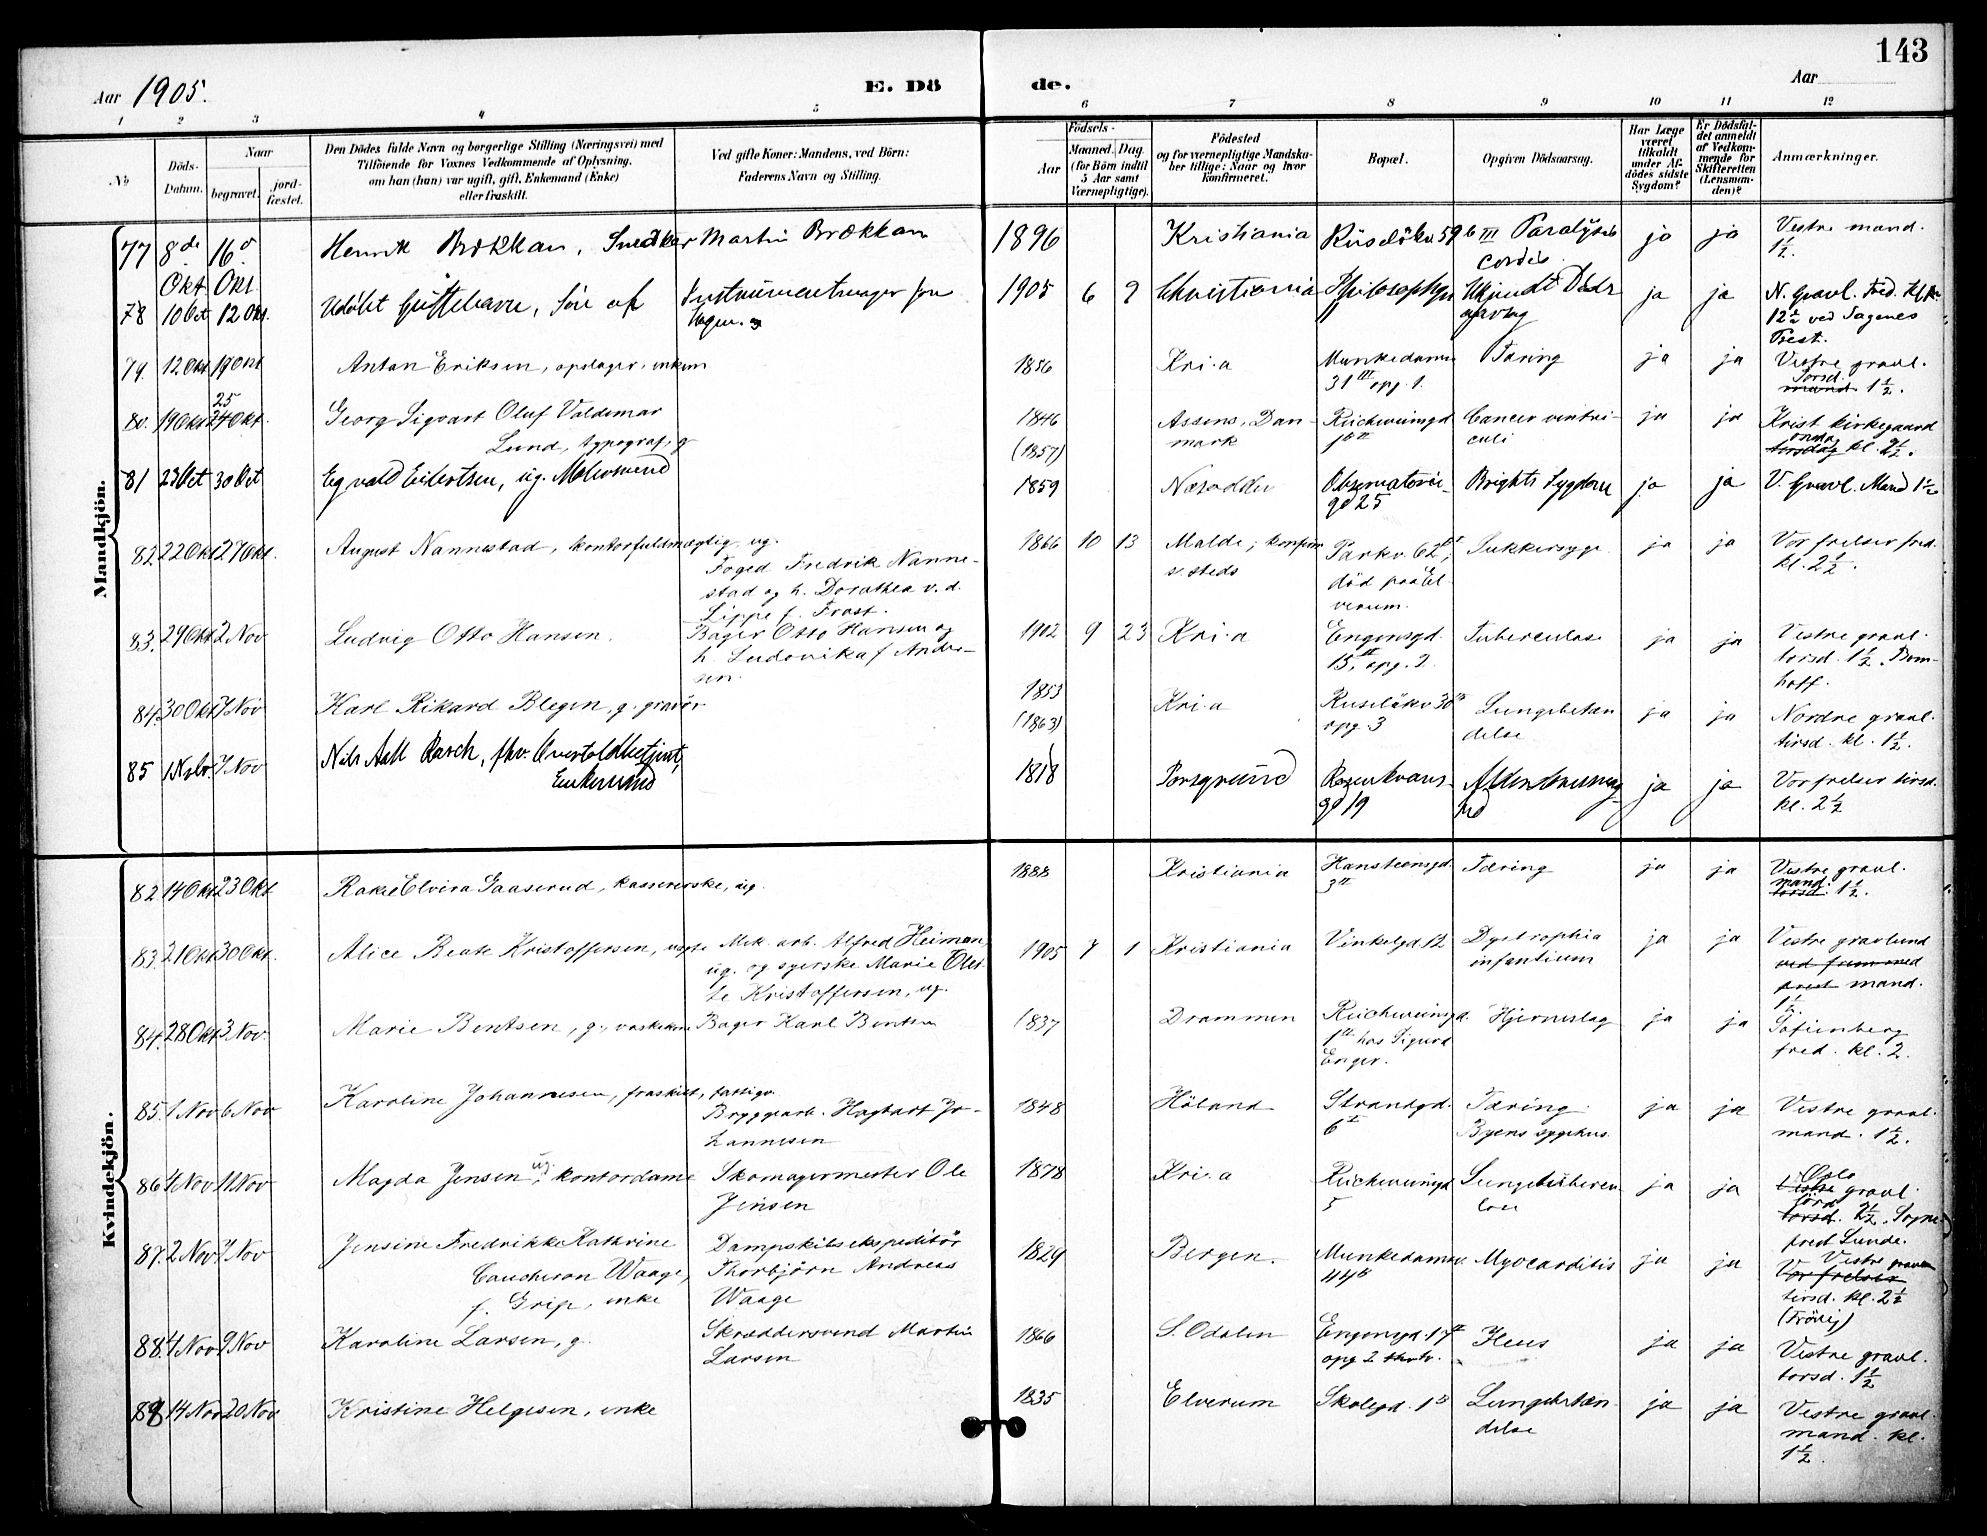 143
Aar 1905.
E. Dö
de.
Aar
1 2 3 4 5 6 7 8 9 10 11 12
No
Döds-
Datum.
Naar
begravet.
jord-
fæstet.
Den Dödes fulde Navn og borgerlige Stilling (Næringsvei) med
Tilföiende for Voxnes Vedkommende af Oplysning,
om han (hun) var ugift, gift, Enkemand (Enke)
eller fraskilt.
Ved gifte Koner: Mandens, ved Börn:
Faderens Navn og Stilling.
Födsels-
Aar
Maaned. Dag.
(for Börn indtil
5 Aar samt
Værnepligtige).
Födested
og for værnepligtige Mandska-
ber tillige: Naar og hvor
konfirmeret.
Bopæl.
Opgiven Dödsaarsag.
Har Læge
været
tilkaldt
under Af-
dödes sidste
Sygdom?
Er Dödsfal-
det anmeldt
af Vedkom-
mende for
Skifteretten
(Lensman-
den)?
Anmærkninger.
Mandkjön.
77 8de Okt 16d Okt Henrik Brækkan, Snedker Martin Brækkan 1896 Kristiania Rüselökv 59b III Paralysis cordis ja ja Vestre mand. 1½
78 10 Oct 12 Okt. Udöbt Guttebarn, Sön af Instrumentmager 1905 6 9 Christiania Ukjendt Döds aarsag ja ja N. Gravl. Fred. Kl 12½ ved Sagenes Prest.
79. 12 Okt 19 Okt Anton Eriksen, opslager, enkem 1856 Kri.a Munkedamsv 31 III opg. 1. Tæring ja ja Vestre gravl. Torsd. mand. 1½.
80. 19 Okt 25 24 Okt. Georg Sigvart Oluf Valdemar Lund, typograf, g 1846 (1857) Assens, Dan- mark Richeveinsgd Cancer ventri- culi ja ja Krist kirkegaard onsdag torsdag kl. 9½.
81 23 Oct 30 Oct Egvald Eilertsen, ug. Malersvend 1859 Næsodden Observatorie- gd 25 Brights Sygdom ja ja V. Gravl. Mand 1½
82 22 Okt 27 Okt. August Nannestad, kontorfuldmægtig, ug. Foged Fredrik Nanne- stad og h. Dorothea v. d. Lippe f. Frost. 1866 10 13 Molde; konfirm s. steds Parkv. 62 II, död paa El- verum. Sukkersyge ja ja Vor frelser fred. kl. 2½.
83. 29 Okt 2 Nov Ludvig Otto Hansen. Bager Otto Hansen og h. Ludovika f Andre- sen. 1902 9 23 Kri.a Engensgd. 15, II opg. 2. Tuberculose ja ja Vestre gravl. torsd. 1½. Bom- hoff.
84. 30 Okt 7 Nov Karl Rikard Blegen, g. gravör 1853 (1863) Kri.a Ruselökv 30 opg. 3 Lungebetæn delse ja ja Nordre gravl. tirsd. kl. 1½.
85 1 Nov. 7 Nov Nils Aall Barch, fhv. Overtoldbetjent, Enkemand 1818 Porsgrund Rosenkrans- gd 19 Alderdomssvag hed ja ja Vor frelser tirsd. kl. 2½
Kvindekjön.
82 14 Okt 23 Okt Rakel Elvira Gaaserud, kassererske, ug. 1888 Kristiania Hansteensgd. 3 II Tæring ja ja Vestre gravl. mand. torsd. 1½.
83. 21 Okt 30 Okt. Alice Beate Kristoffersen, uægte Mek. arb. Alfred Heiman, ug. og syerske Marie Olet- te Kristoffersen, ug. 1905 7 1 Kristiania Vinkelgd. 12 Dystrophia infantium ja ja Vestre gravlund mand. 1½
84. 28 Okt 3 Nov. Marie Bentsen, g., vaskekone Bager Karl Bentsen 1837 Drammen Richeveinsgd. 1 hos Sigurd Enger. Hjerneslag ja ja Sofienberg fred. kl. 2.
85. 1 Nov 6 Nov Karoline Johannesen, fraskilt, fattigv. Bryggearb. Hagbart Jo- hannesen 1848 Höland Strandgd. 6 I Tæring. Byens sygehus. ja ja Vestre gravl. mand. 1½.
86. 4 Nov 11 Nov Magda Jensen, ug. kontordame Skomagermester Ole Jensen 1878 Kri.a Richeveinsgd 5 Lungetuberku- lose ja ja Oslo Vestre gravl. lörd. torsd. 2½. Sogne- prest Lunde.
87. 2 Nov 7 Nov Jensine Fredrikke Kathrine Caucheron Waage, f. Grip, enke Dampskibsekspeditör Thorbjörn Andreas Waage 1829 Bergen. Munkedamsv. 44b Myocarditis ja ja Vestre gravl. Vor frelser tirsd. kl. 2½
88. 4 Nov 9 Nov Karoline Larsen, g. Skræddersvend Martin Larsen 1866 S. Odalen Engensgd. 17 II opg 2 Ileus ja ja Vestre gravl. torsd. 1½
89 14 Nov 20 Nov Kristine Helgesen, enke 1835 Elverum Skolegd. 1b Lungebetæn- delse ja ja Vestre gravl. mand. kl. 1½.